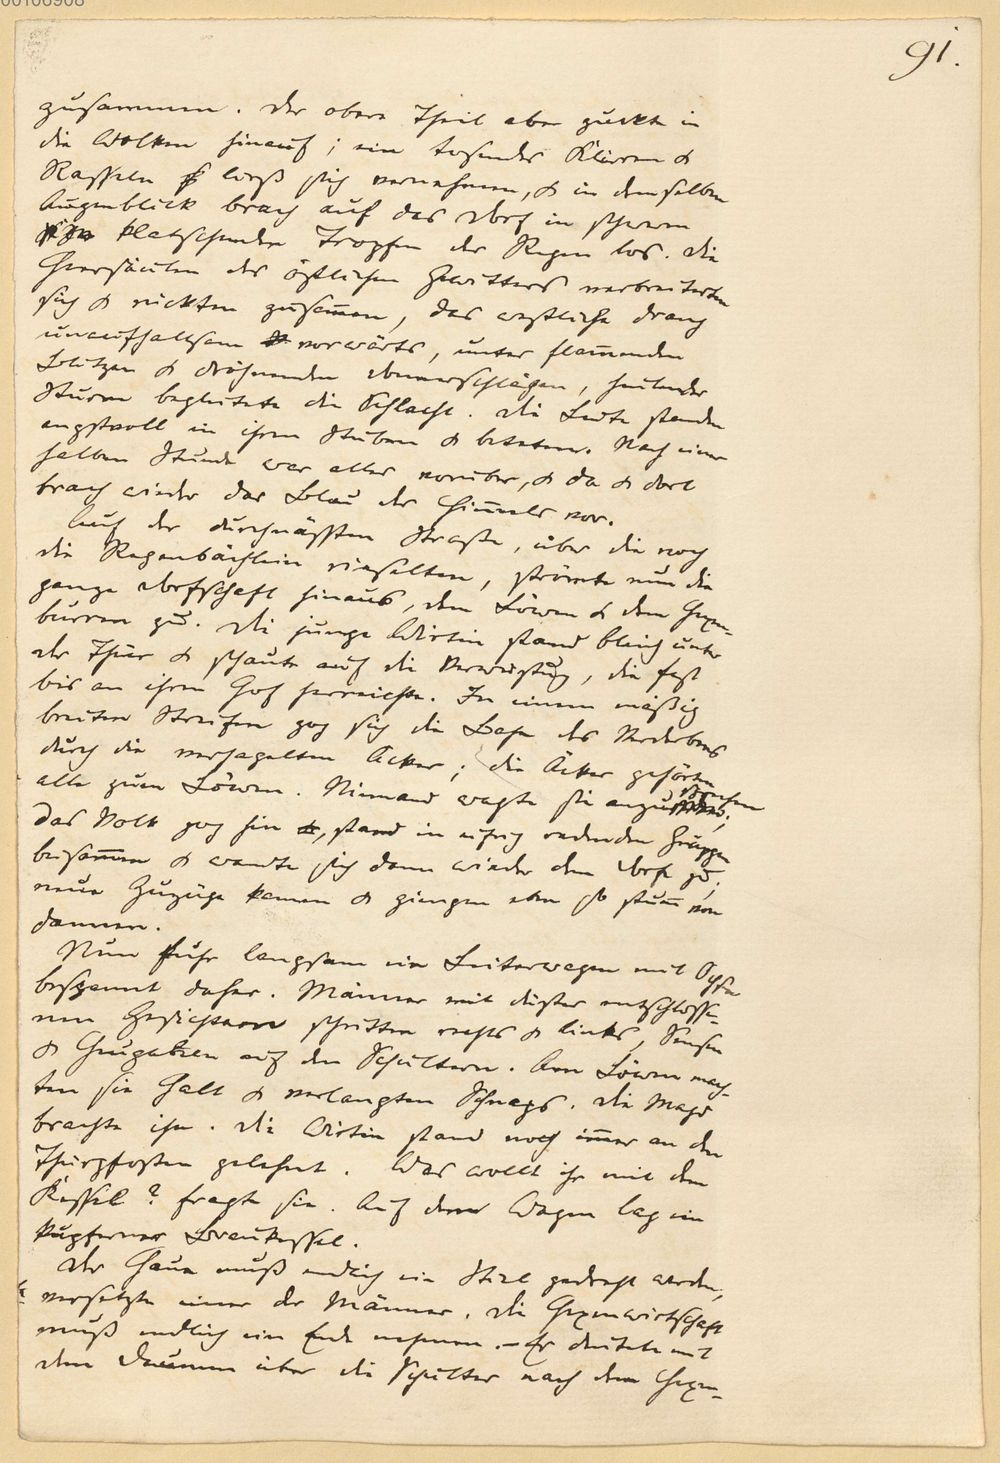 00106908
91.
zusammen. Der obere Theil aber zuckte in
die Wolken hinauf; ein tosendes Klirren &
Rasseln ließ sich vernehmen, & in demselben
Augenblick brach auf das Dorf in schweren
klatschenden Tropfen der Regen los. Die
Heersäulen des östlichen Gewitters verbreiterten
sich & rückten zusam̄en, das westliche drang
unaufhaltsam vorwärts, unter flam̄enden
Blitzen & dröhnenden Donnerschlägen, heulender
Sturm begleitete die Schlacht. Die Leute standen
angstvoll in ihren Stuben & beteten. Nach einer
halben Stunde war alles vorüber, & da & dort
brach wieder das Blau des Him̄els vor.
Auf der durchnäßten Straße, über die noch
die Regenbächlein rieselten, strömte nun die
ganze Dorfschaft hinaus, dem Löwen & dem Hexen-
burren zu. Die junge Wirtin stand bleich unter
der Thür & schaute auf die Verwüstung, die fast
bis an ihren Hof herreichte. In einem mäßig
breiten Streifen zog sich die Bahn des Verderbens
durch die verhagelten Äcker; die Äcker gehörten
alle zum Löwen. Niemand wagte sie anzusprechen;
das Volk zog hin, stand in eifrig redenden Gruppen
beisam̄en & wandte sich dann wieder dem Dorfe zu;
neue Zuzüge kamen & giengen eben so stum̄ von
dannen.
Nun fuhr langsam ein Leiterwagen mit Ochsen
bespannt daher. Männer mit düster entschlosse-
nen Gesichtern schritten rechts & links, Sensen
& Heugabeln auf den Schultern. Am Löwen mach-
ten sie Halt & verlangten Schnaps. Die Magd
brachte ihn. Die Wirtin stand noch im̄er an den
Thürpfosten gelehnt. Was wollt ihr mit dem
Kessel? fragte sie. Auf dem Wagen lag ein
kupferner Braukessel.
Der Haue muß endlich ein Stiel gedreht werden,
versetzte einer der Männer. Die Hexenwirtschaft
muß endlich ein Ende nehmen. – Er deutete mit
dem Daumen über die Schulter nach dem Hexen-